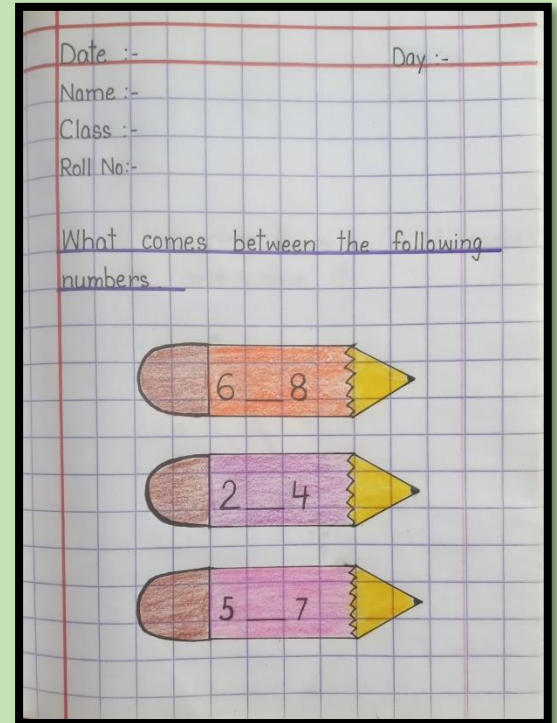 Date :- Day :-
Name :-
Class :-
Roll No:-
What comes between the following
numbers.
6 __ 8
2 __ 4
5 __ 7